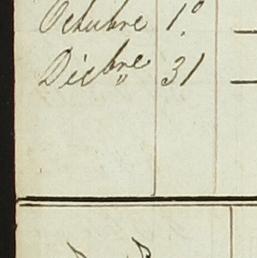 Octubre 1º
Dicbre 31